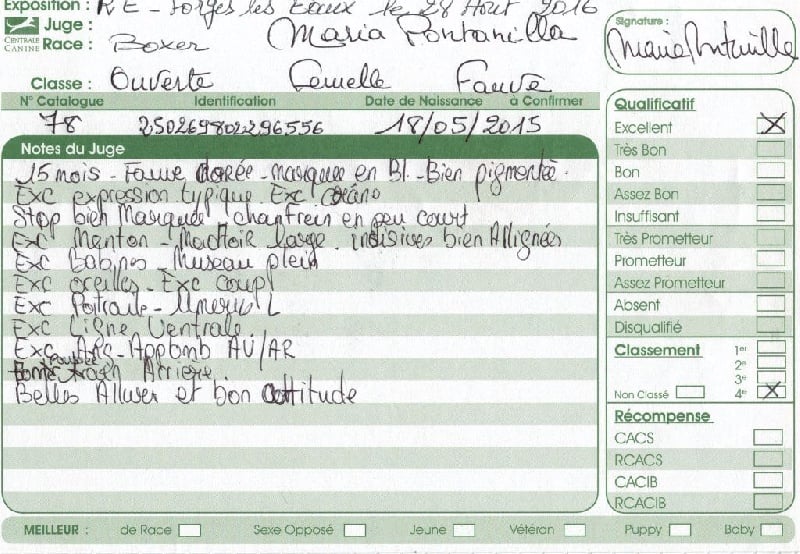 Exposition : RE - Forges les Eaux le 28 Aout 2016
CENTRALE CANINE
Juge : Maria Pontanilla
Race : Boxer
Signature :
Classe : Ouverte Femelle Fauve
N° Catalogue Identification Date de Naissance à Confirmer
78 250269802296556 18/05/2015
Notes du Juge
15 mois - Fauve dorée - marquée en Bl. - Bien pigmentée.
Exc expression typique. Exc crâne
Stop bien Marqué chanfrein en peu court
Exc Menton - Machoir large. indisives bien Allignés
Exc Babines - Museau plein
Exc oreilles - Exc coup
Exc Poitraile -
Exc Ligne Ventrale.
Exc - Applomb AV/AR
Arriere.
Belles Allures et bon attitude
Qualificatif
Excellent X
Très Bon
Bon
Assez Bon
Insuffisant
Très Prometteur
Prometteur
Assez Prometteur
Absent
Disqualifié
Classement 1er
2e
3e
Non Classé 4e X
Récompense
CACS
RCACS
CACIB
RCACIB
MEILLEUR : de Race Sexe Opposé Jeune Vétéran Puppy Baby